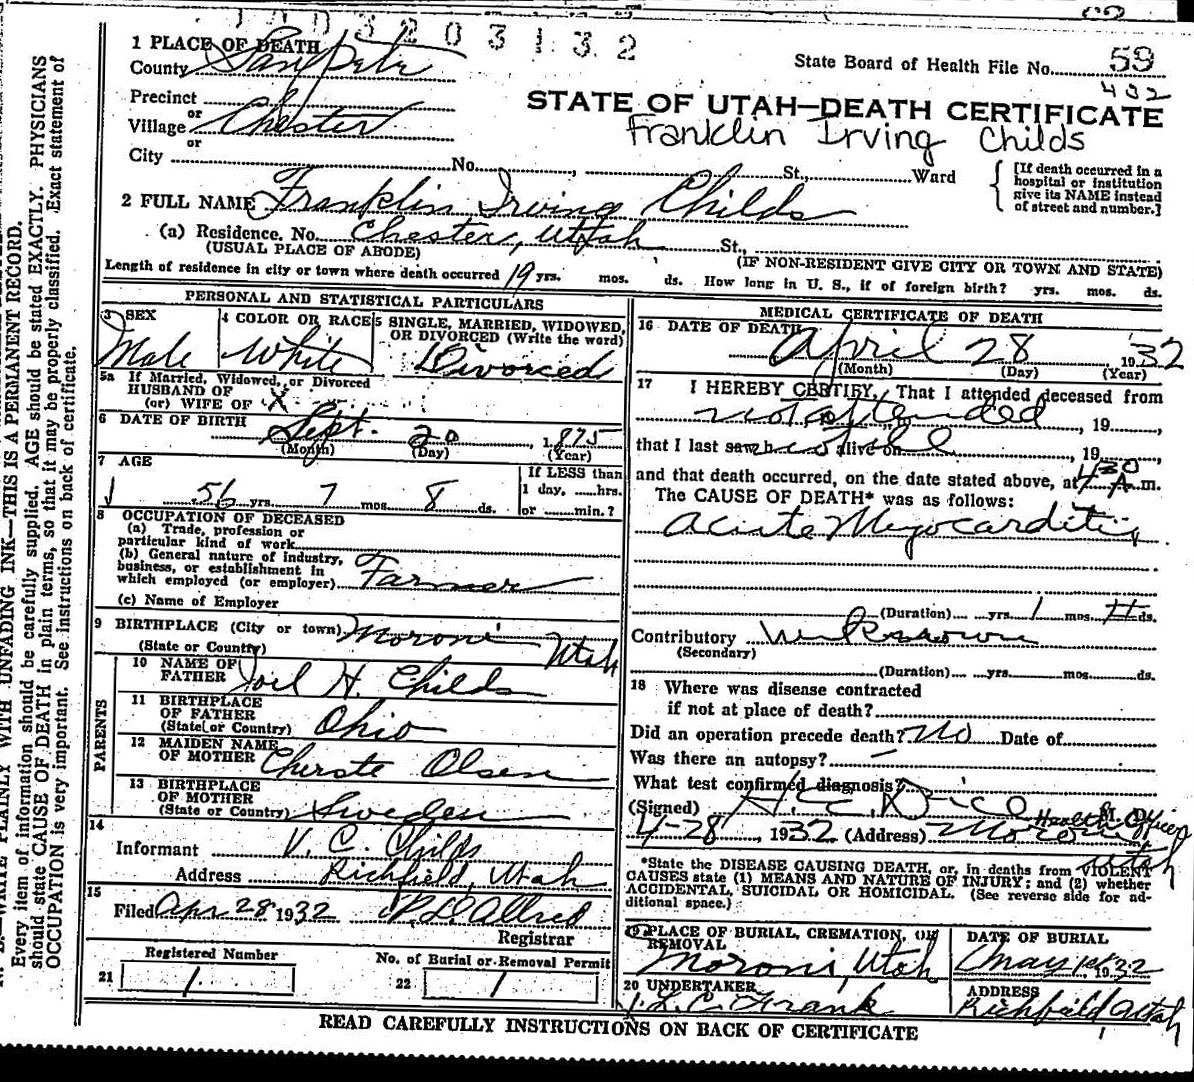 1 PLACE OF DEATH
County Sanpete
State Board of Health File No. 59
432
Precinct
or
Village Chester
or
City No. St., Ward
STATE OF UTAH—DEATH CERTIFICATE
Franklin Irving Childs
{ [If death occurred in a
hospital or institution
give its NAME instead
of street and number.]
2 FULL NAME Franklin Irving Childs
(a) Residence. No. Chester, Utah St.,
(USUAL PLACE OF ABODE) (IF NON-RESIDENT GIVE CITY OR TOWN AND STATE)
Length of residence in city or town where death occurred 19 yrs. mos. ds. How long in U. S., if of foreign birth? yrs. mos. ds.
PERSONAL AND STATISTICAL PARTICULARS
3 SEX
Male
4 COLOR OR RACE
White
5 SINGLE, MARRIED, WIDOWED,
OR DIVORCED (Write the word)
Divorced
5a If Married, Widowed, or Divorced
HUSBAND OF
(or) WIFE OF X
6 DATE OF BIRTH
Sept. 20, 1875
(Month) (Day) (Year)
7 AGE
56 yrs. 7 mos. 8 ds.
If LESS than
1 day, ......hrs.
or ......min.?
8 OCCUPATION OF DECEASED
(a) Trade, profession or
particular kind of work
(b) General nature of industry,
business, or establishment in
which employed (or employer) Farmer
(c) Name of Employer
9 BIRTHPLACE (City or town) Moroni
(State or Country) Utah
PARENTS
10 NAME OF
FATHER Joel H. Childs
11 BIRTHPLACE
OF FATHER
(State or Country) Ohio
12 MAIDEN NAME
OF MOTHER Cherste Olsen
13 BIRTHPLACE
OF MOTHER
(State or Country) Sweden
14
Informant V. C. Childs
Address Richfield, Utah
15
Filed Apr 28 1932 Allred
Registrar
Registered Number
21 1
No. of Burial or Removal Permit
22 1
MEDICAL CERTIFICATE OF DEATH
16 DATE OF DEATH
April 28 1932
(Month) (Day) (Year)
17 I HEREBY CERTIFY, That I attended deceased from
not attended, 19
that I last saw h alive on, 19
and that death occurred, on the date stated above, at 430 A.m.
The CAUSE OF DEATH* was as follows:
Acute Myocarditis
(Duration) yrs. 1 mos. ds.
Contributory Unknown
(Secondary)
(Duration) yrs. mos. ds.
18 Where was disease contracted
if not at place of death?
Did an operation precede death? No Date of
Was there an autopsy? —
What test confirmed diagnosis?
(Signed) M. D.
Health Officer
4-28, 1932 (Address) Moroni
Utah
*State the DISEASE CAUSING DEATH, or, in deaths from VIOLENT
CAUSES state (1) MEANS AND NATURE OF INJURY; and (2) whether
ACCIDENTAL, SUICIDAL OR HOMICIDAL. (See reverse side for ad-
ditional space.)
19 PLACE OF BURIAL, CREMATION, OR
REMOVAL
Moroni, Utah
DATE OF BURIAL
May 1st 1932
20 UNDERTAKER
L. C. Frank
ADDRESS
Richfield Utah
READ CAREFULLY INSTRUCTIONS ON BACK OF CERTIFICATE
WRITE PLAINLY WITH UNFADING INK—THIS IS A PERMANENT RECORD.
Every item of information should be carefully supplied. AGE should be stated EXACTLY. PHYSICIANS
should state CAUSE OF DEATH in plain terms, so that it may be properly classified. Exact statement of
OCCUPATION is very important. See instructions on back of certificate.